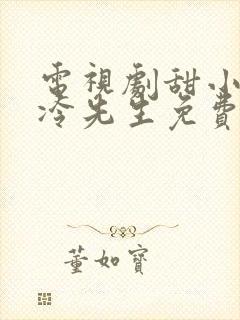 電視劇甜小
冷先生免費
董如寶